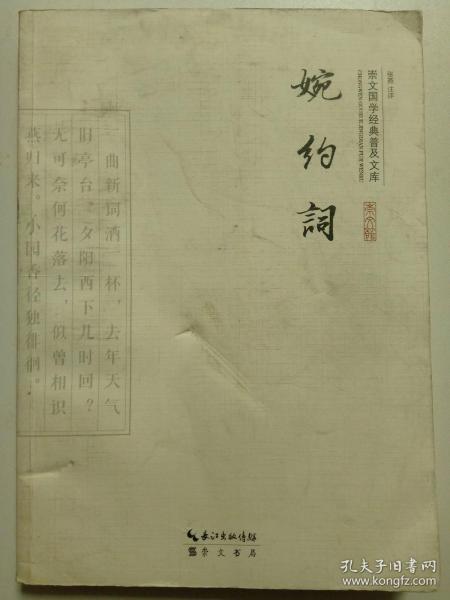 张燕 注评
崇文国学经典普及文库
CHONGWEN GUOXUE JINGDIAN PUJI WENKU
婉约詞
一曲新词酒一杯，去年天气
旧亭台。夕阳西下几时回？
无可奈何花落去，似曾相识
燕归来。小园香径独徘徊。
长江出版传媒
崇文书局
孔夫子旧书网
www.kongfz.com